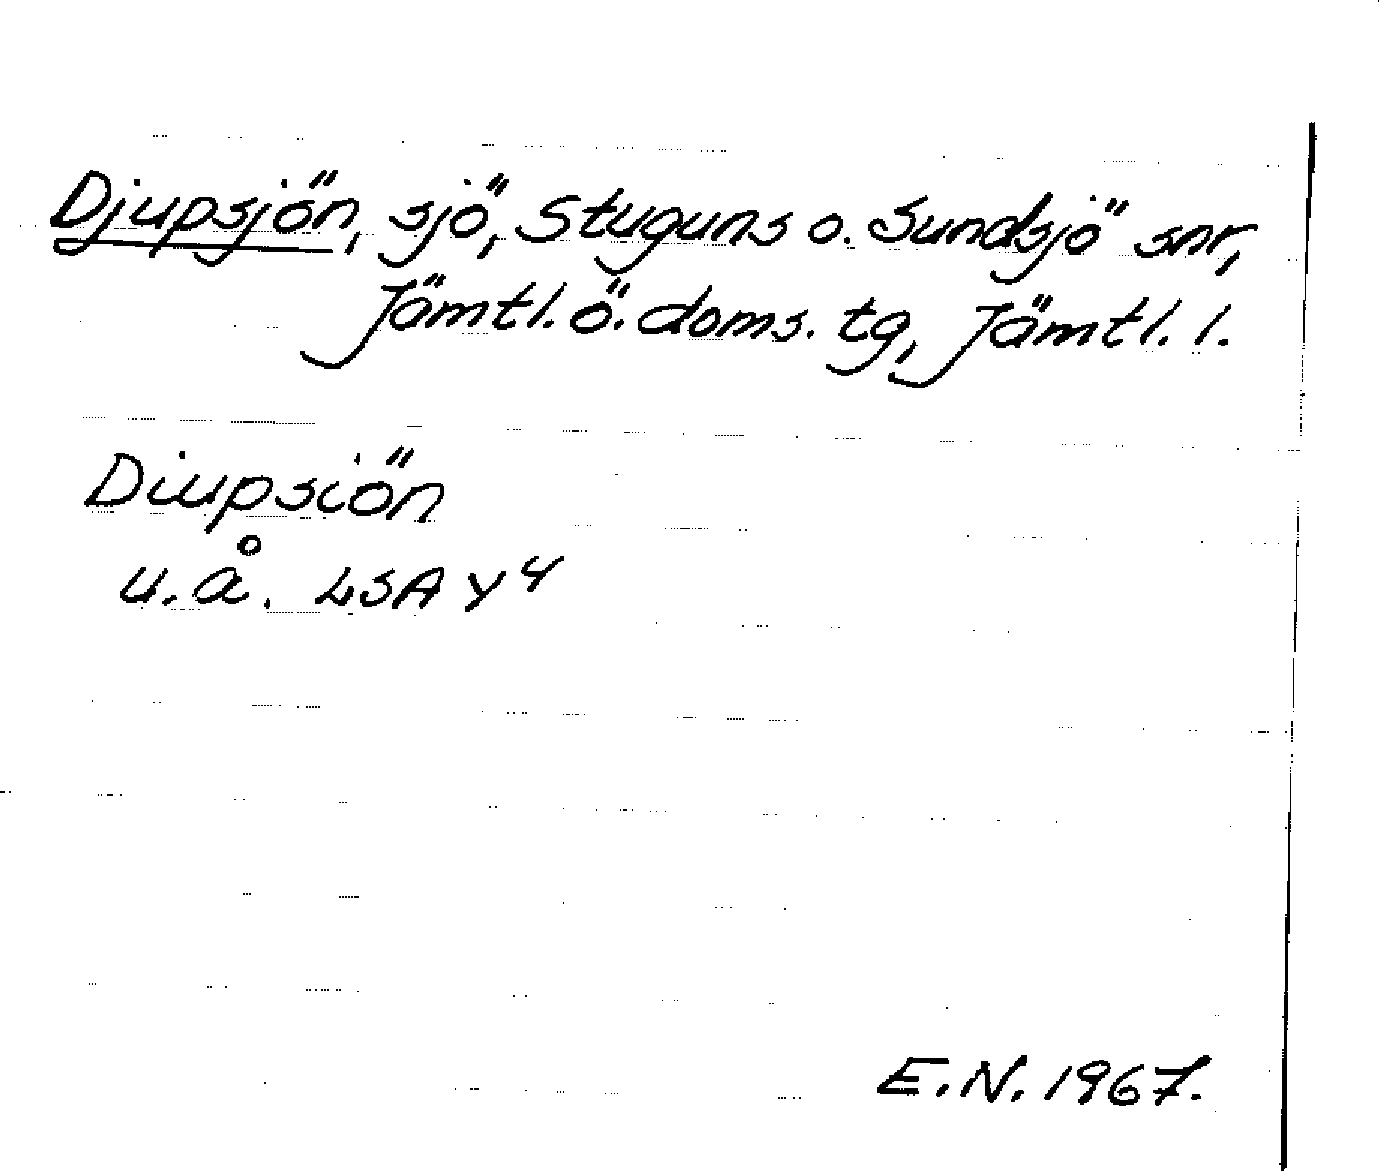 Djupsjön, sjö, Stuguns o. Sundsjö snr,
Jämtl. ö. doms. tg, Jämtl. l.
Diupsiön
u.å. LSA Y4
E.N. 1967.